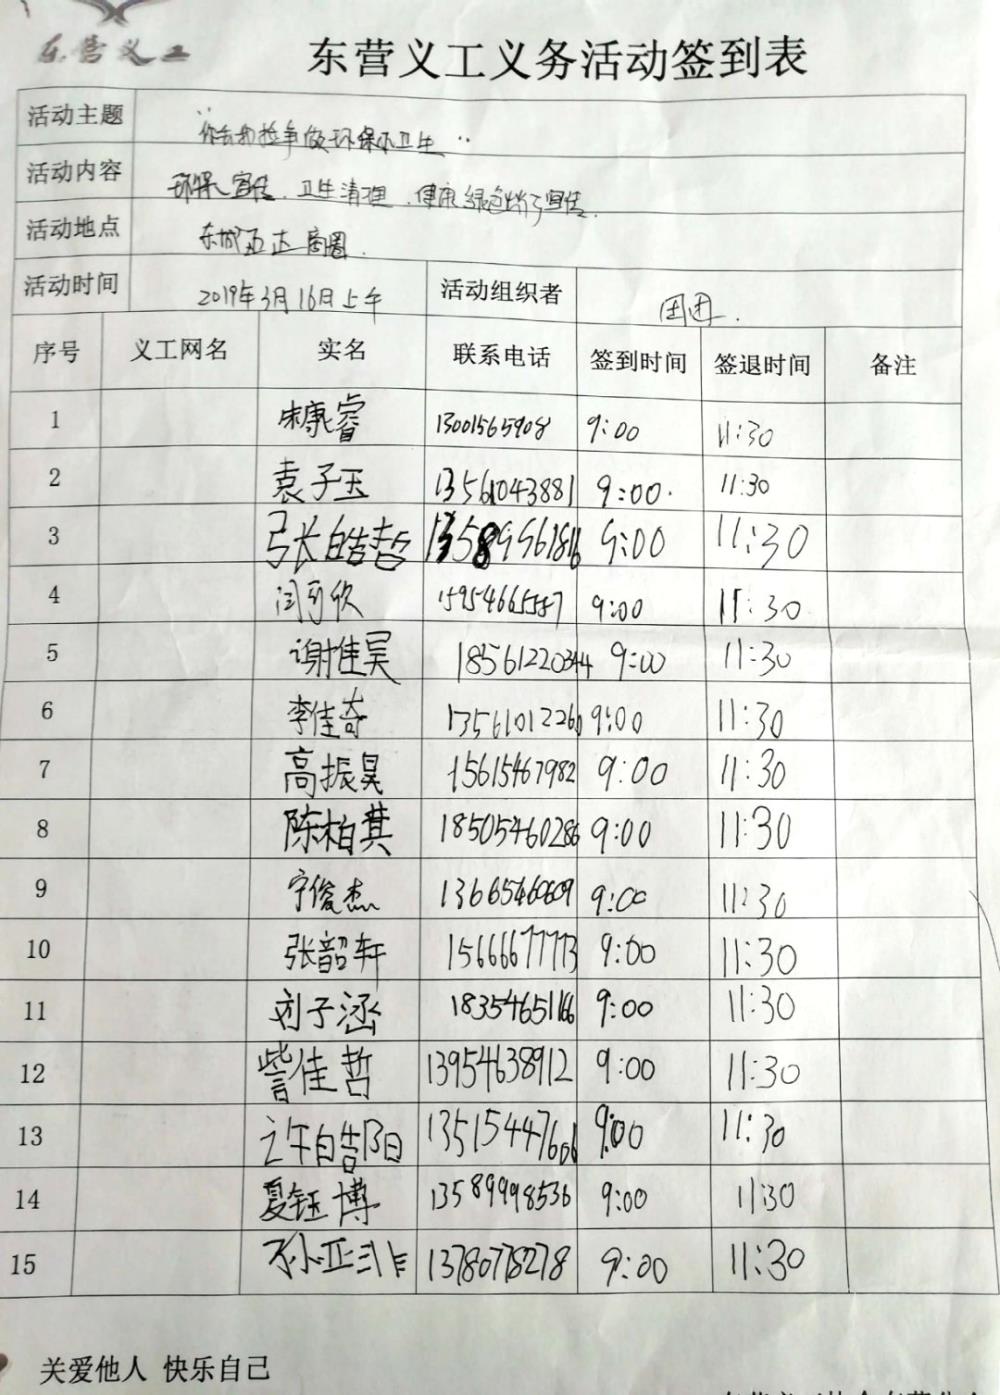 东营义工
东营义工义务活动签到表
活动主题 "你去我捡争做环保小卫生"
活动内容 环保宣传、卫生清理、健康绿色出行宣传.
活动地点 东城万达商圈.
活动时间 2019年3月16日上午 活动组织者 团团.
序号 义工网名 实名 联系电话 签到时间 签退时间 备注
1 宋康睿 13001565908 9:00 11:30
2 袁子玉 13561043881 9:00. 11:30
3 张皓哲 9:00 11:30
4 闫可欣 15954665557 9:00 11:30
5 谢佳昊 18561220344 9:00 11:30
6 李佳奇 13561012260 9:00 11:30
7 高振昊 15615467982 9:00 11:30
8 陈柏萁 18505460286 9:00 11:30
9 宁俊杰 13665460609 9:00 11:30
10 张韶轩 15666677773 9:00 11:30
11 刘子涵 18354651166 9:00 11:30
12 訾佳哲 13954638912 9:00 11:30
13 许皓阳 13515447606 9:00 11:30
14 夏钰博 13589998536 9:00 11:30
15 13780778278 9:00 11:30
关爱他人 快乐自己